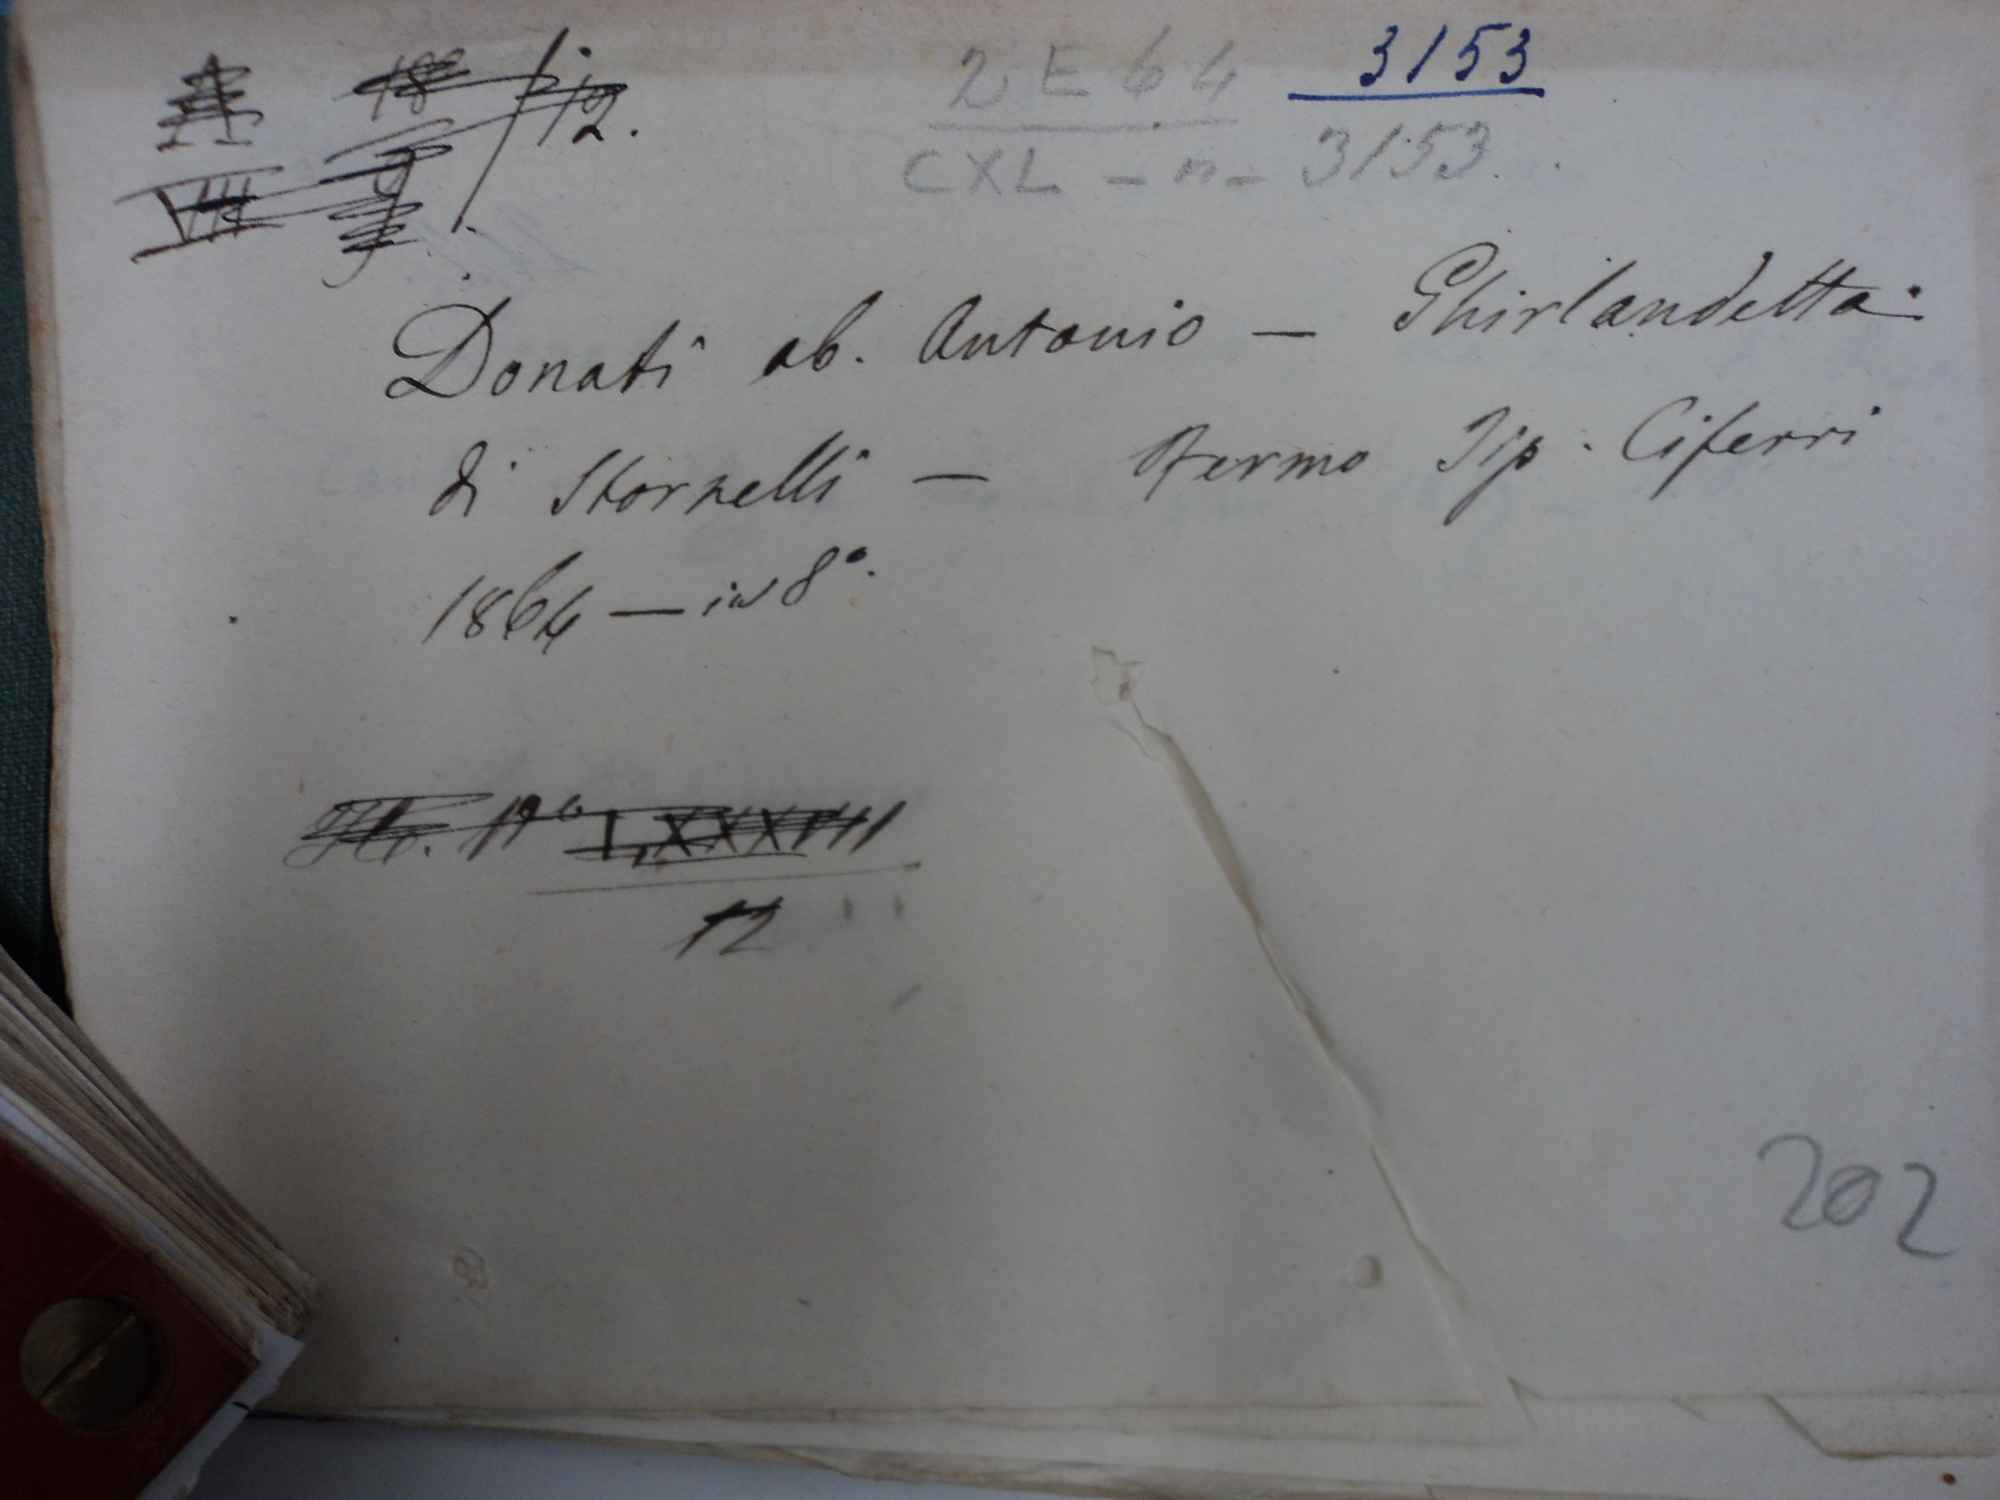 12.
2 E 64 3153
CXL - n - 3153.
Donati ab. Antonio — Ghirlandetta
di Stornelli — Fermo Tip. Ciferri
1864 — in 8°.
LXXXVIII
12
202